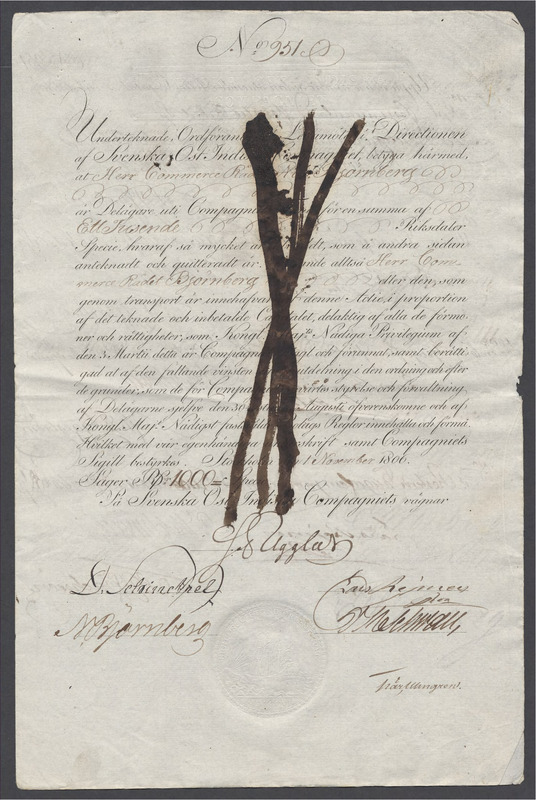 No. 951
Underteknade, Ordförande Directionen
af Svenska Ost Indiska Compagniet, betyga härmed,
at Herr Commerce Rådet Björnberg
är Delägare uti Compagniet för en summa af
Ett Tusende Riksdaler
Specie, hvaraf så mycket är som å andra sidan
antecknadt och quitteradt är. alltså Herr Com-
merce Rådet Björnberg eller den, som
genom transport är innehafvare af denne Actie, i proportion
af det teknade och inbetalte Capitalet, delaktig af alla de förmo-
ner och rättigheter, som Kongl. Maj:ts Nådiga Privilegium af
den 3 Martii detta år Compagniet och förunnat, samt berätti-
gad at af den fallande vinsten utdelning i den ordning och efter
de grunder, som de för Compagniets styrelse och förvaltning
af Delägarne sjelfve den 30 Augusti öfverenskomne och af
Kongl. Maj:t Nådigst Bolags Regler innehålla och förmå.
Hvilket med vår egenhändiga underskrift samt Compagniets
Sigill bestyrkes. Stockholm November 1806.
Säger Rdr 1000
På Svenska Ost Indiska Compagniets vägnar
Ugglas
D. Schinckel
N Björnberg
Lars Rejmers